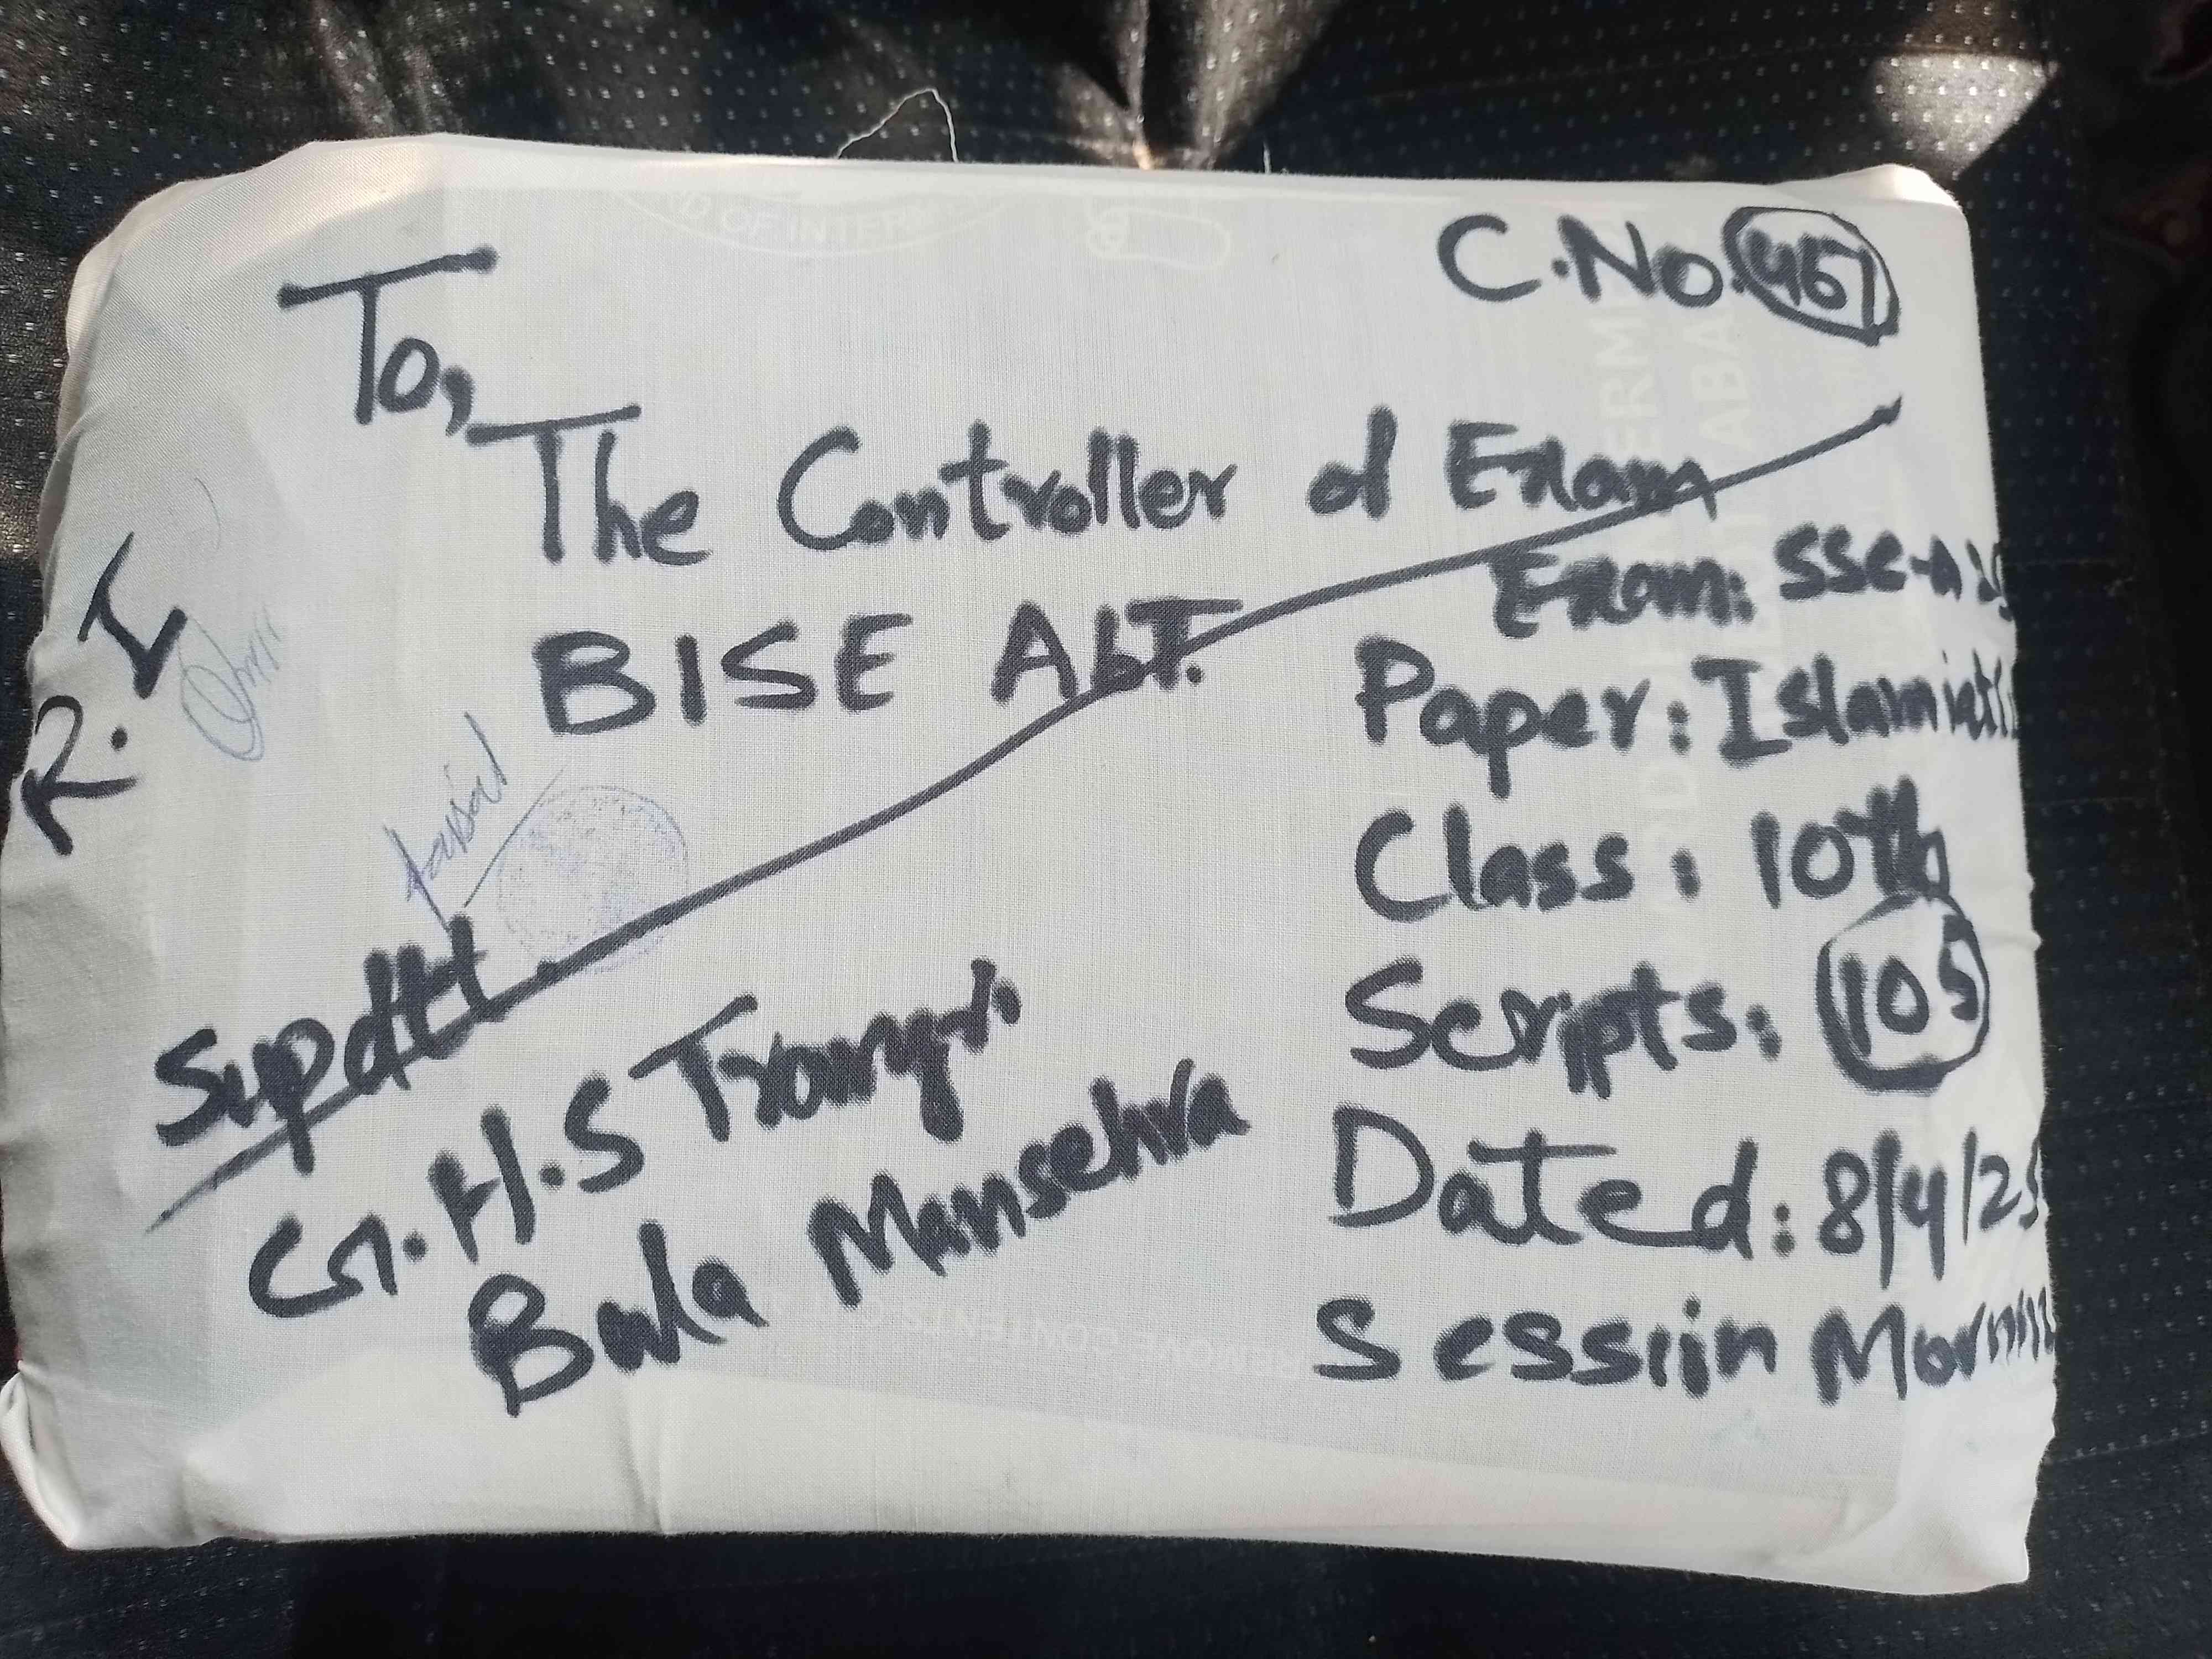 C.No. 467
To,
The Controller of Exam
BISE AbT.
Exam: SSC-A 25
Paper: Islamiat
Class: 10th
Scripts: 105
Dated: 8/4/25
Session Mornin
R.I
Faisal
Supdtt.
G.H.S Trangri
Bala Mansehra